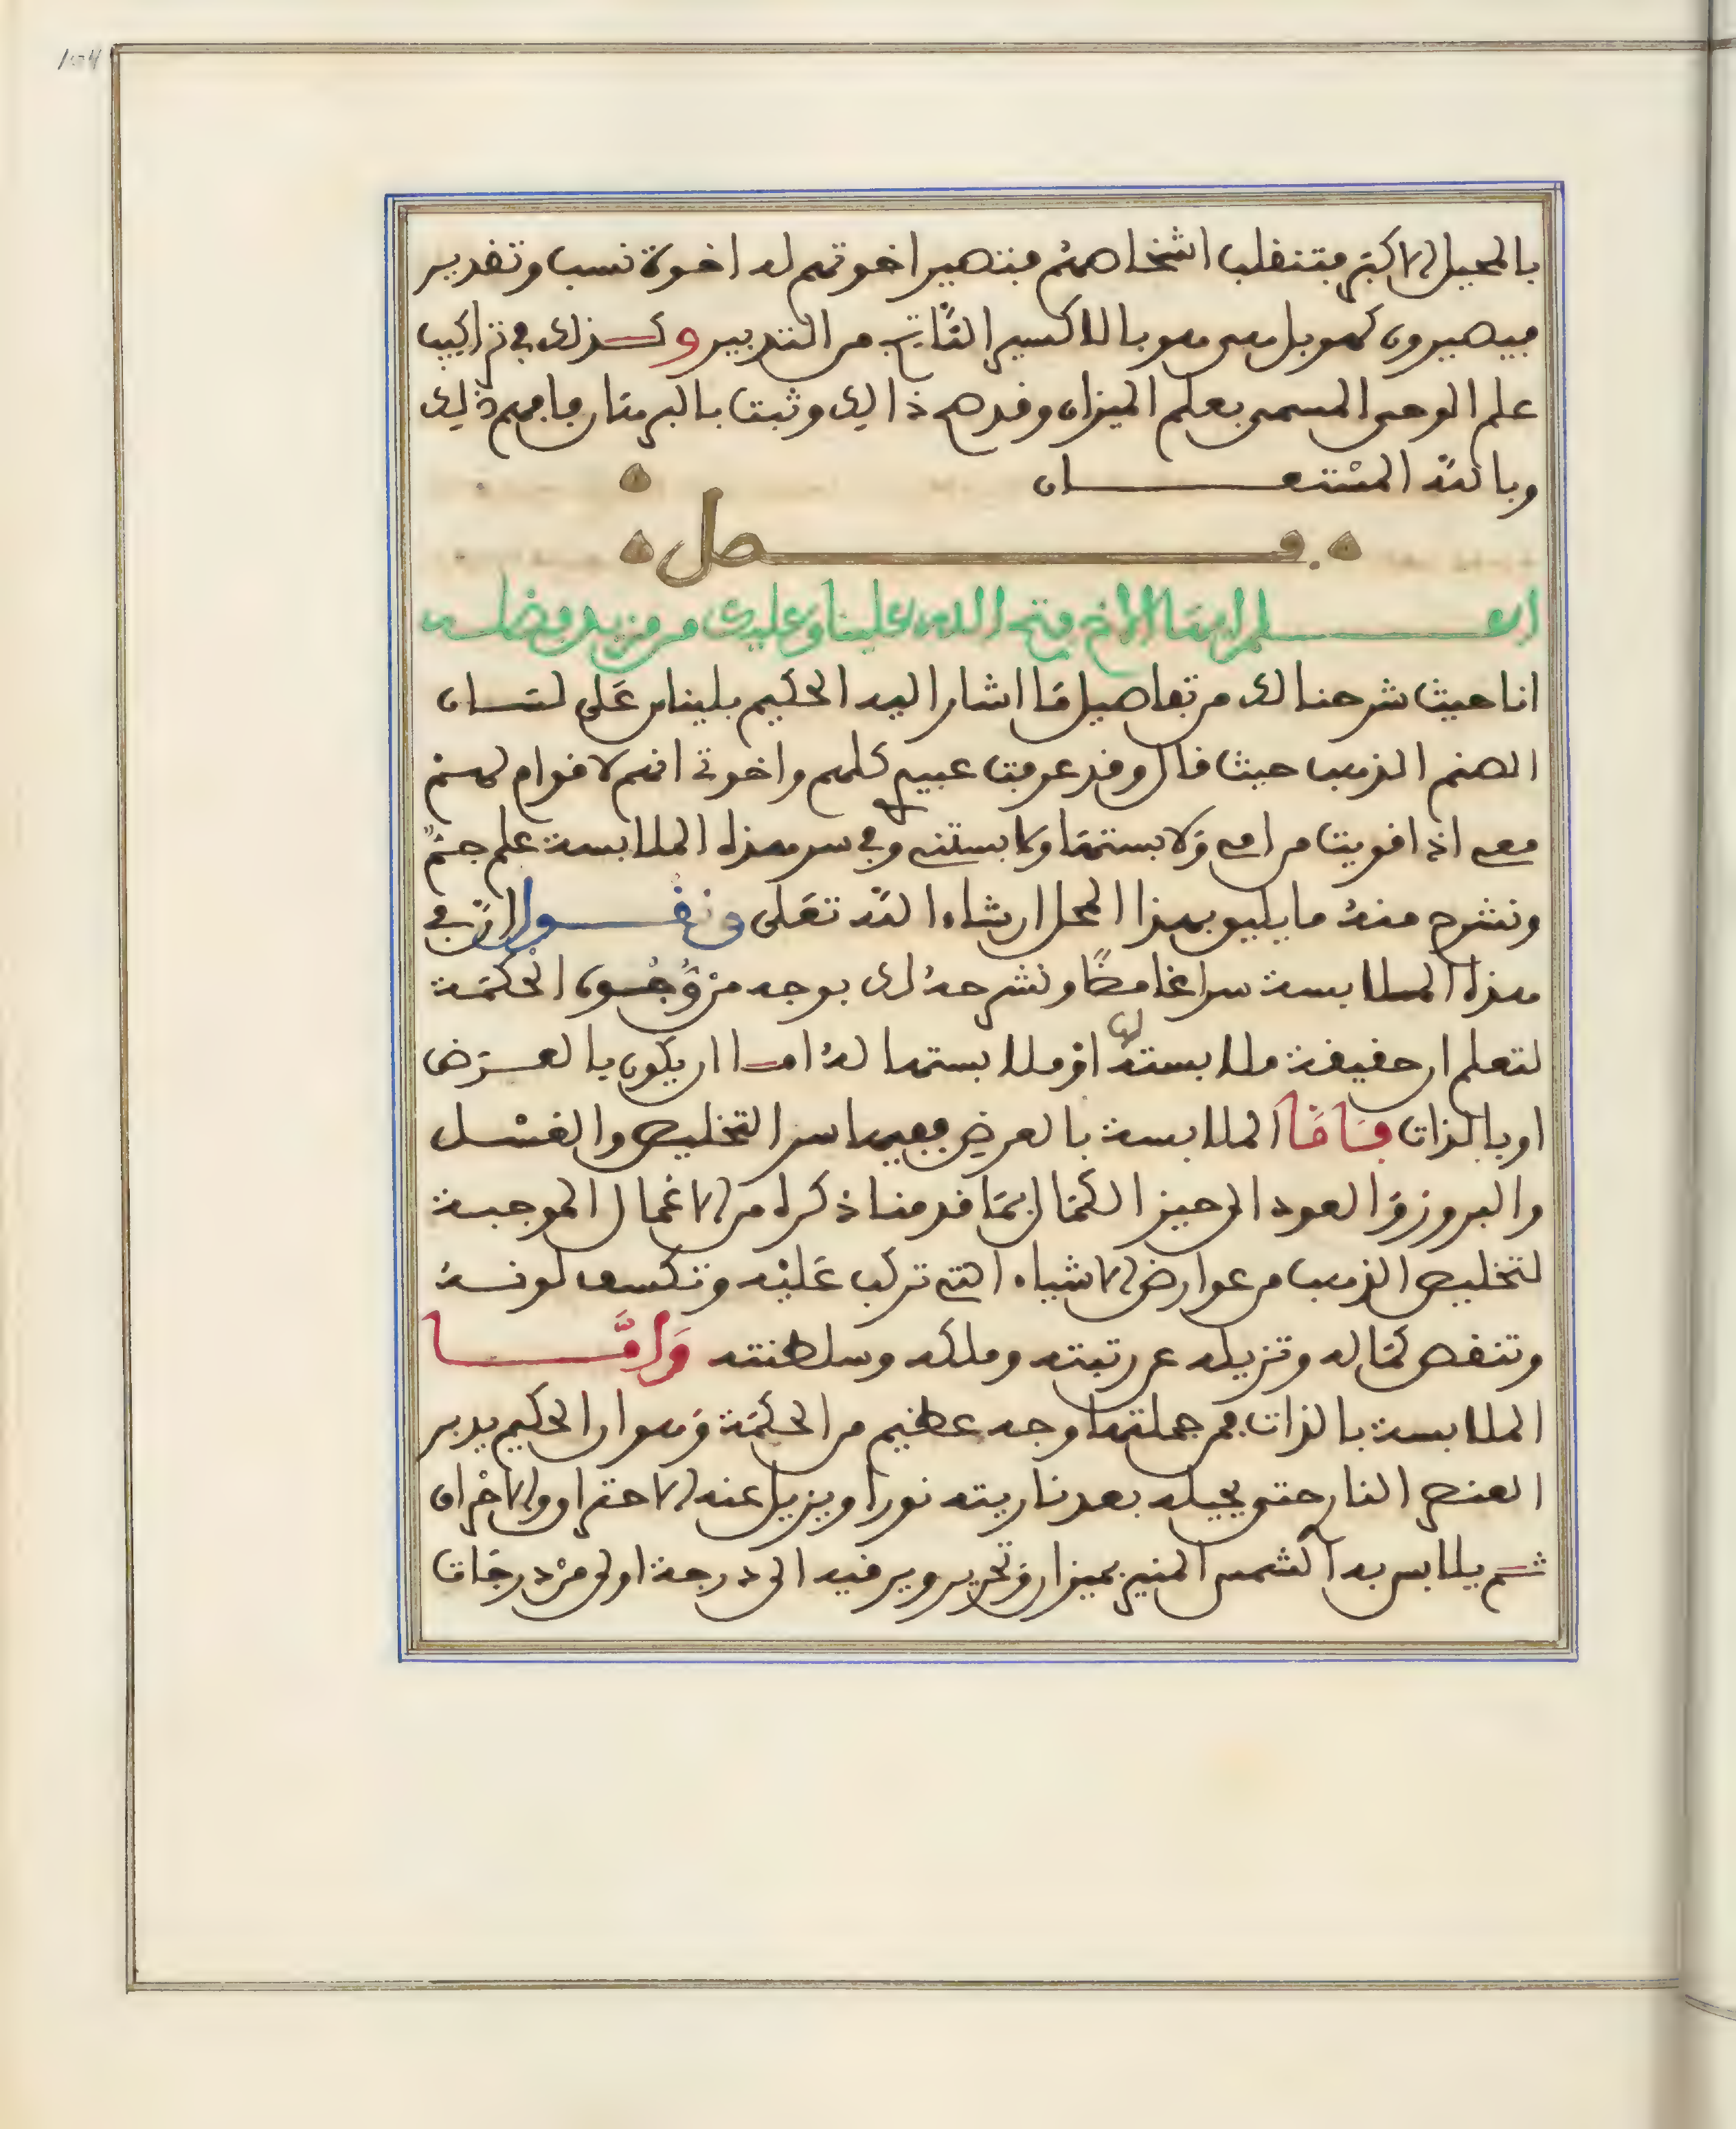 بالمحيل الاكبر فتنقلب اشخاصهم فتصير اخوتهم له اخوة نسب وتقدير
فيصيرون كهو بل هي هو بالاكسير الثاني من التدبير وكذلك في تراكيب
علم الوحي المسمى بعلم الميزان وقد صح ذالك وثبت بالبرهان فافهم ذلك
وبالله المستعان
فصل
اعلم ايها الاخ فتح الله علينا وعليك من مزيد فضله
انا حيث شرحنا لك من تفاصيل ما اشار اليه الحكيم بليناس على لسان
الصنم الذهب حيث قال وقد عرفت عبيدي كلهم واخوتي انهم لا قوام لهم
معي اذا قويت من امي ولابستها ولابستني وفي سر هذه الملابسة علم جم
ونشرح منه ما يليق بهذا المحل ان شاء الله تعلى ونقول ان في
هذه الملابسة سرا غامضا ونشرحه لك بوجه من وجوه الحكمة
لتعلم ان حقيقة ملابسته لها او ملابستها له اما ان يكون بالعرض
او بالذات فاما الملابسة بالعرض ففيها سر التخليص والغسل
والبروز والعود الى حيز الكمال بما قدمنا ذكره من الاعمال الموجبة
لتخليص الذهب من عوارض الاشياء التي تركب عليه وتكسف لونه
وتنقص كماله وتزيله عن رتبته وملكه وسلطنته واما
الملابسة بالذات فمن جملتها وجه عظيم من الحكمة وهو ان الحكيم يدبر
العنصر النار حتى يحيله بعد ناريته نورا ويزيل عنه الاحتراق والاحراق
ثم يلابس به الشمس المنير بميزان وتحرير ويرقيه الى درجة اولى من درجات